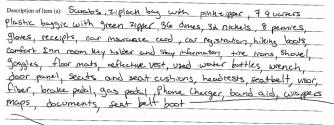 Description of Item (s): Swabs, ziplock bag with pink zipper, 79 quarters
plastic baggie with green zipper, 36 dimes, 32 nickels, 8 pennies,
gloves, receipts, car insurance card, car registration, hiking boots,
comfort Inn room key holder and stay information, tire irons, shovel,
goggles, floor mats, reflective vest, used water bottles, wrench,
door panel, seats and seat cushions, headrests, seatbelt, visor,
fiber, brake pedal, gas pedal, Phone charger, band aid, wrappers
maps, documents, seat belt boot